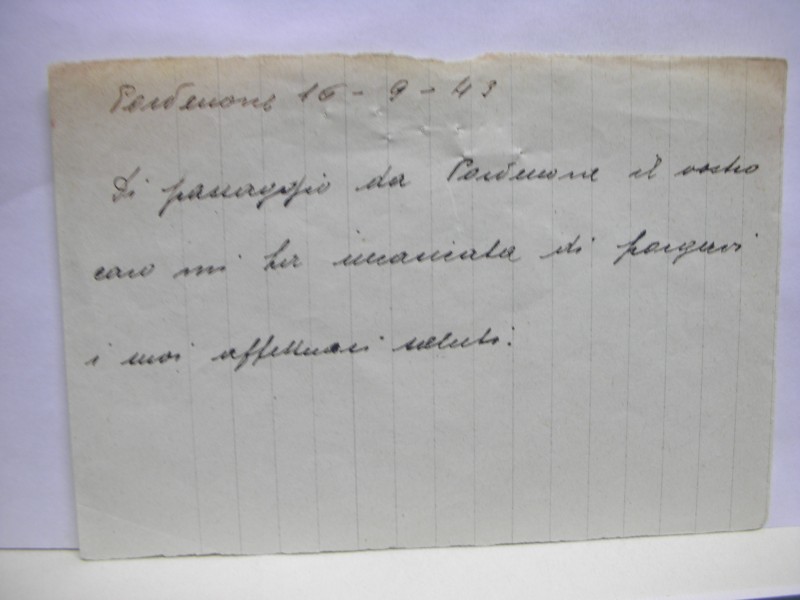 Pordenone 16 - 9 - 43
Di passaggio da Pordenone il vostro
caro mi ha incaricata di porgervi
i suoi affettuosi saluti.